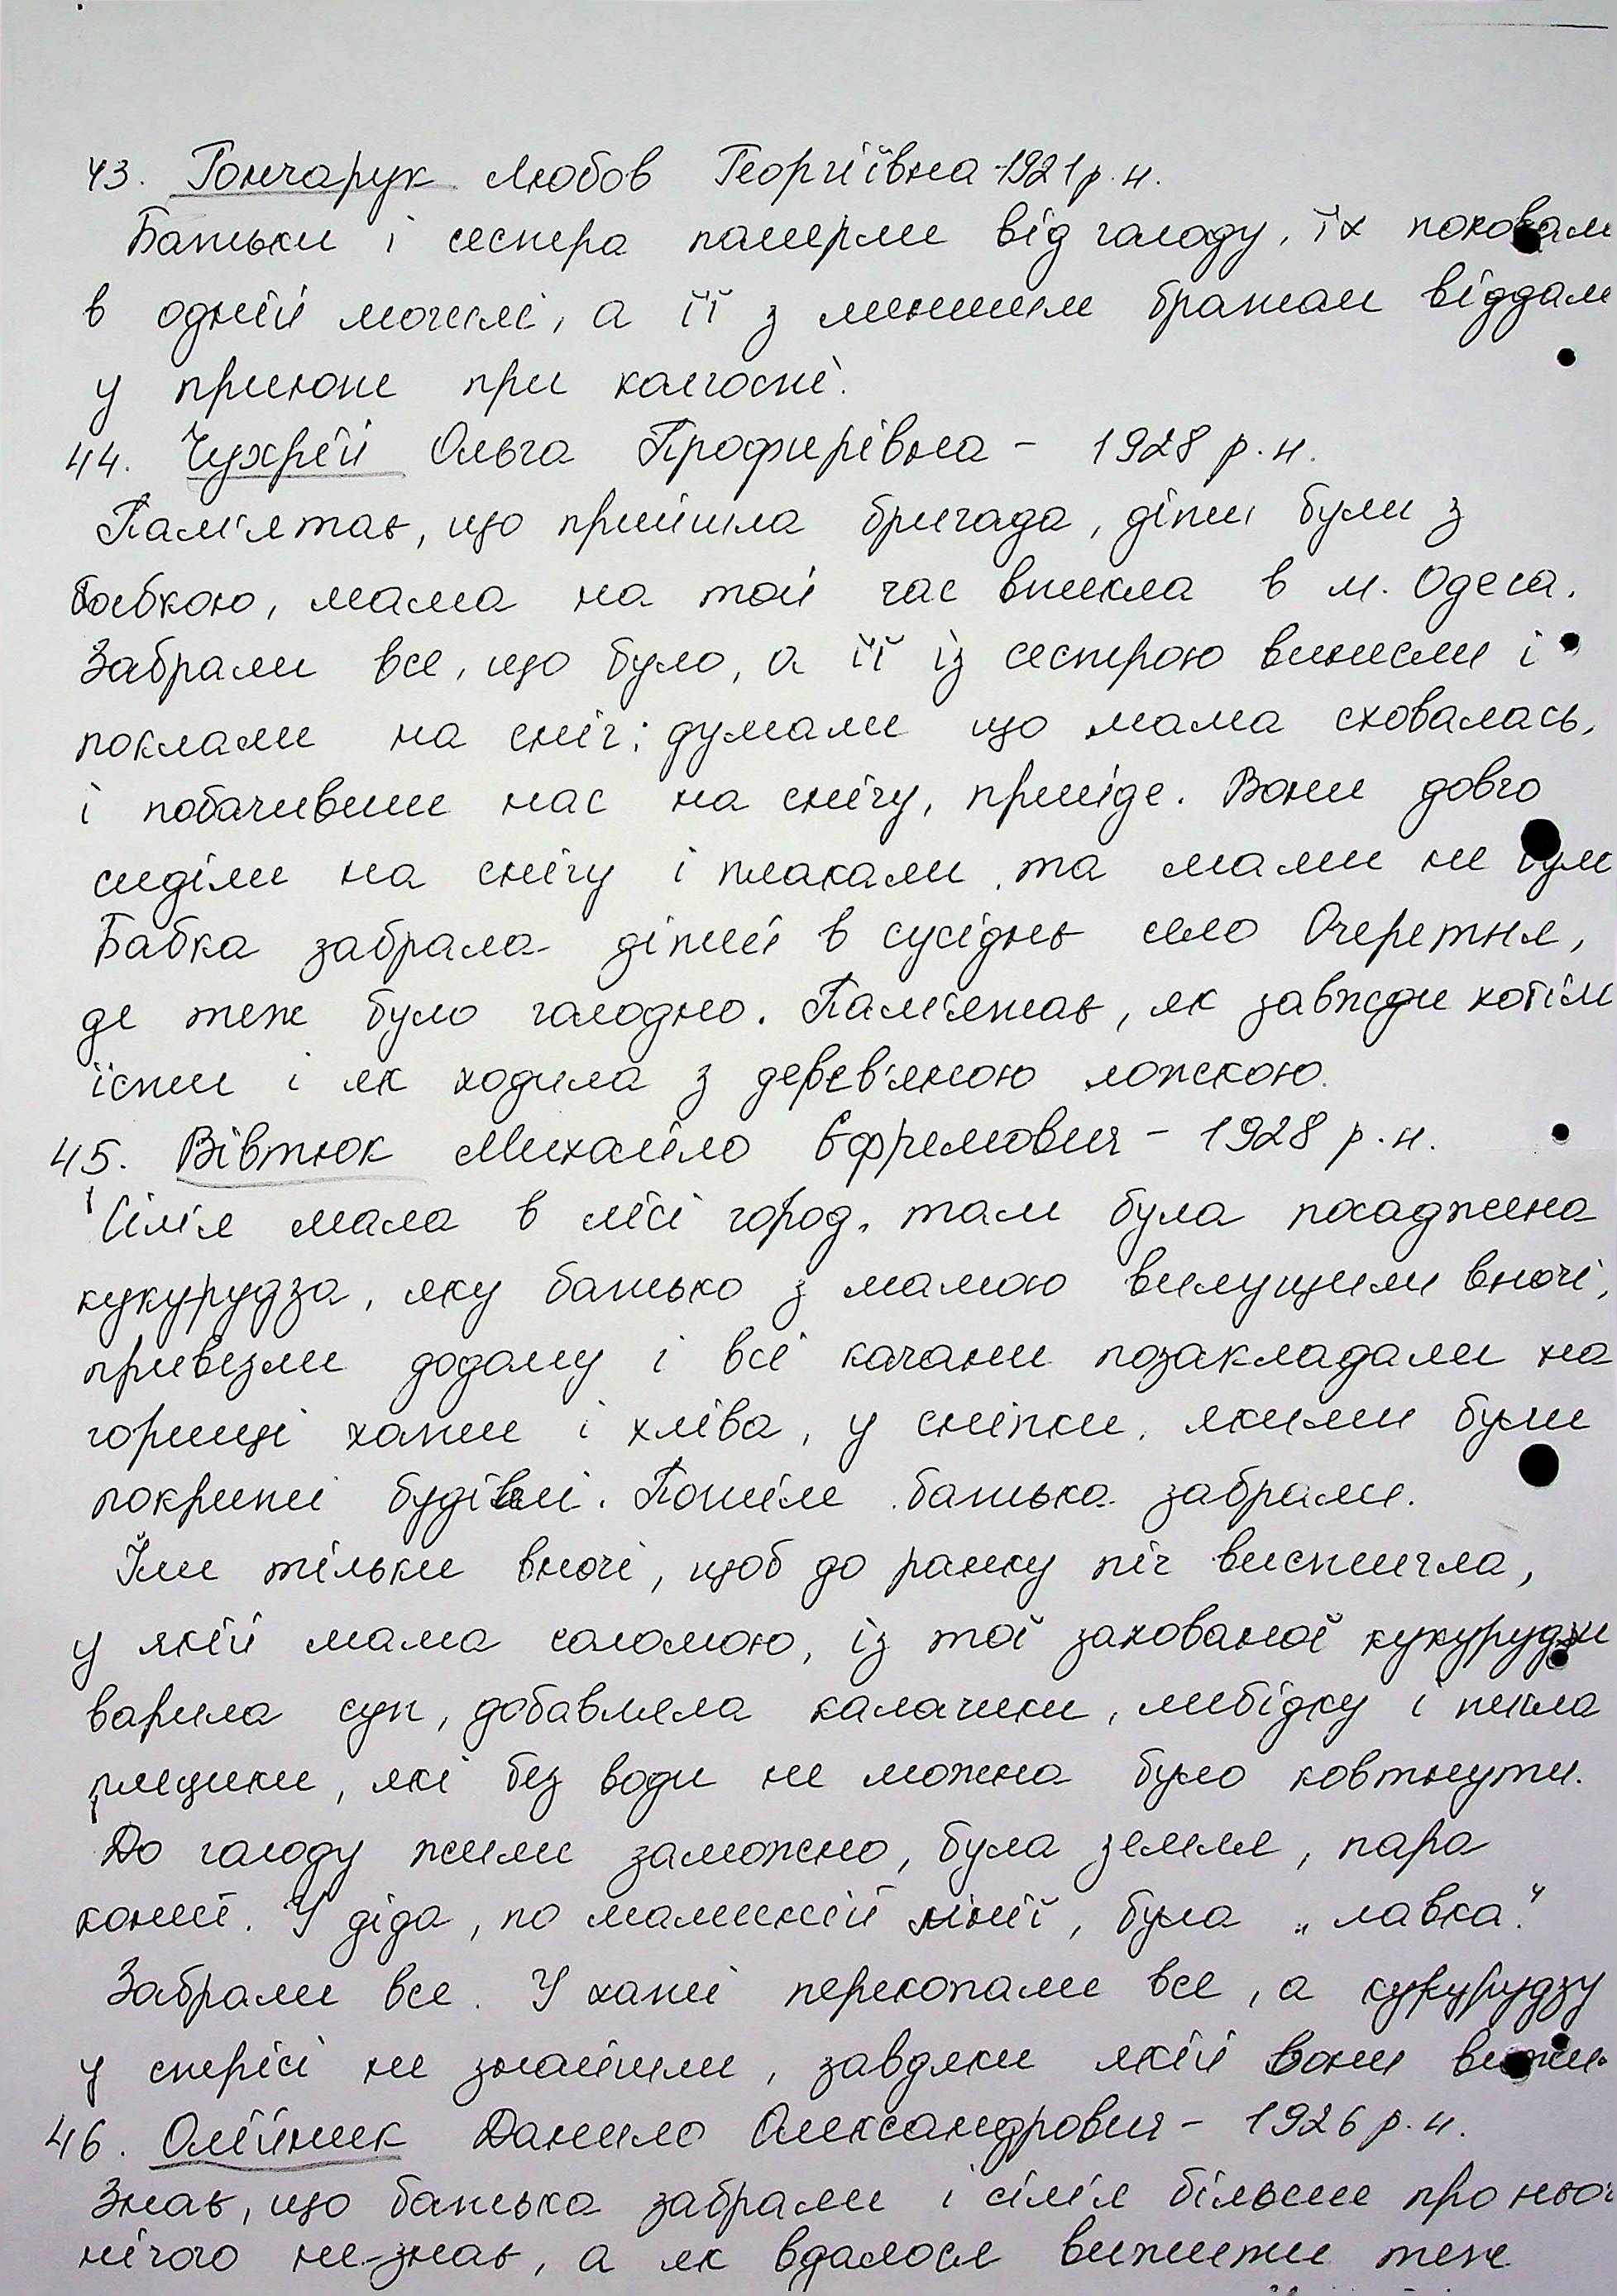 43. Гончарук Любов Георгіївна - 1921 р. н.
Батьки і сестра памерли від голоду, їх поховали
в одній могилі, а її з меншим братом віддали
у притоне при колгоспі.
44. Чухрій Ольга Профирівна - 1928 р. н.
Пам'ятає, що прийшла бригада, діти були з
бабкою, мама на той час втикла в м. Одеса.
Забрали все, що було, а її із сестрою винесли і
поклали на сніг; думали що мама сховалась,
і побачивши нас на снігу, приіде. Вони довго
сиділи на снігу і плакали, та мами не було
Бабка забрала дітий в сусіднє село Очеретня,
де теж було голодно. Пам'ятає, як завжди хотіли
їсти і як ходила з дерев'яною ложкою.
45. Вівтюк Михайло Єфремович - 1928 р. н.
Сім'я мала в лісі город, там була посаджена
кукурудза, яку батько з мамою вилущили вночі,
привезли додому і всі качани позакладали на
горищі хати і хліва, у сніпки, якими були
покриті будівлі. Потім батька забрали.
Їли тільки вночі, щоб до ранку піч вистигла,
у якій мама соломою, із тої захованої кукурудзи
варила суп, добавляла калачики, либідку і пикла
плецики, які без води не можна було ковтнути.
До голоду жили заможно, була земля, пара
коний. У діда, по маминій лінії, була „лавка."
Забрали все. У хаті перекопали все, а кукурудзу
у стрісі не знайшли, завдяки якій вони вижили
46. Олійник Данило Олександрович - 1926 р. н.
Знає, що батька забрали і сім'я більше про нього
нічого не знає, а як вдалося вижити теж